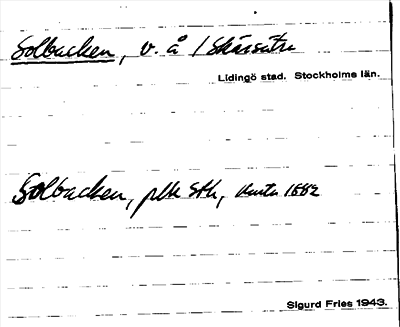 Solbacken, v. å / Skärsätra
Lidingö stad. Stockholms län.
Solbacken, plk Sth, karta 1882
Sigurd Fries 1943.